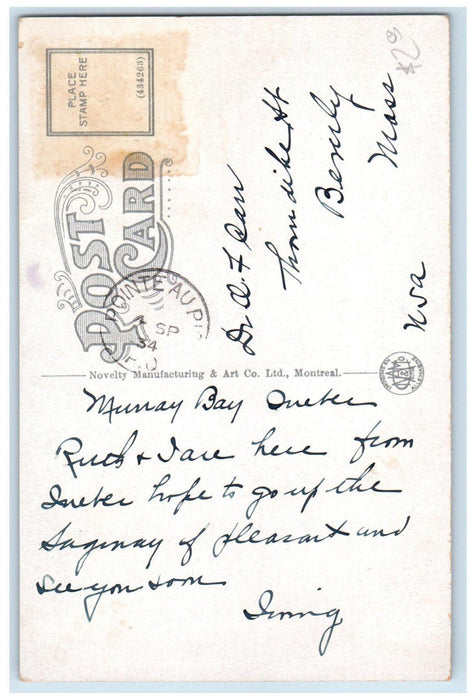 PLACE
STAMP HERE
(434263)
POST
CARD
POINTE AU PI
SP
34
Dr A F
Thorndike St
Beverly
Mass
USA
Novelty Manufacturing & Art Co. Ltd., Montreal.
Murray Bay Quebec
Ruth & I are here from
Quebec hope to go up the
Saginay if pleasant and
see you soon
Irving